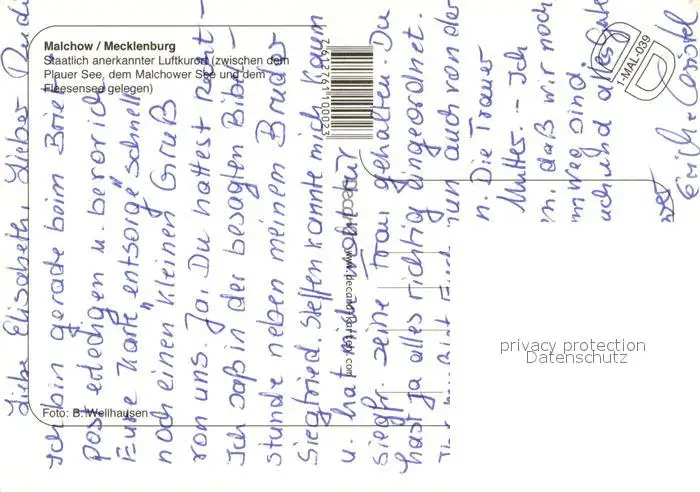 Malchow / Mecklenburg
Staatlich anerkannter Luftkurort (zwischen dem
Plauer See, dem Malchower See und dem
Fleesensee gelegen)
7612761100023
1-MAL-039
www.decatur
.com
Foto: B. Wellhausen
Liebe Elisabeth, Lieber Rudi
Ich bin gerade beim Brief
post erledigen u. bevor ich
Eure Karte "entsorge" schnell
noch einen kleinen Gruß
von uns. Ja, Du hattest recht –
Ich saß in der besagten Bibel-
stunde neben meinem Bruder
Siegfried. Steffen kannte mich kaum
u. hat mich
Siegfr. seine Frau gehalten. Du
hast ja alles richtig eingeordnet.
nun auch von der
n. Die Trauer
Mutter. – Ich
m, daß wir noch
m Weg sind.
uch und alles Gute
Erich
privacy protection
Datenschutz